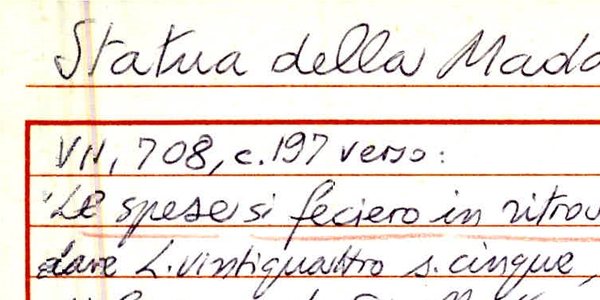 Statua della Mado
VII, 708, c.197 verso:
"Le spese si feciero in ritrov
dare L. vintiquattro s. cinque,